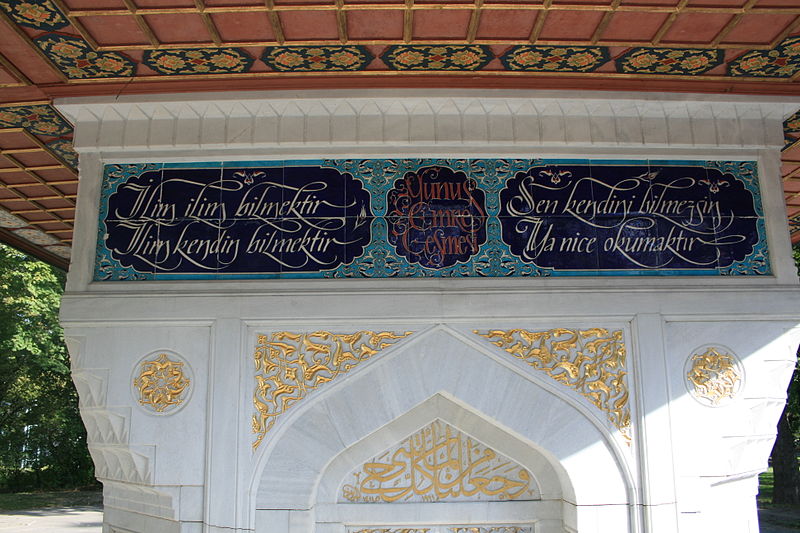 İlim ilim bilmektir
İlim kendin bilmektir
Yunus
Emre
Çeşmesi
Sen kendini bilmezsin
Ya nice okumaktır
وجعلنا من الماء كل شيء حي